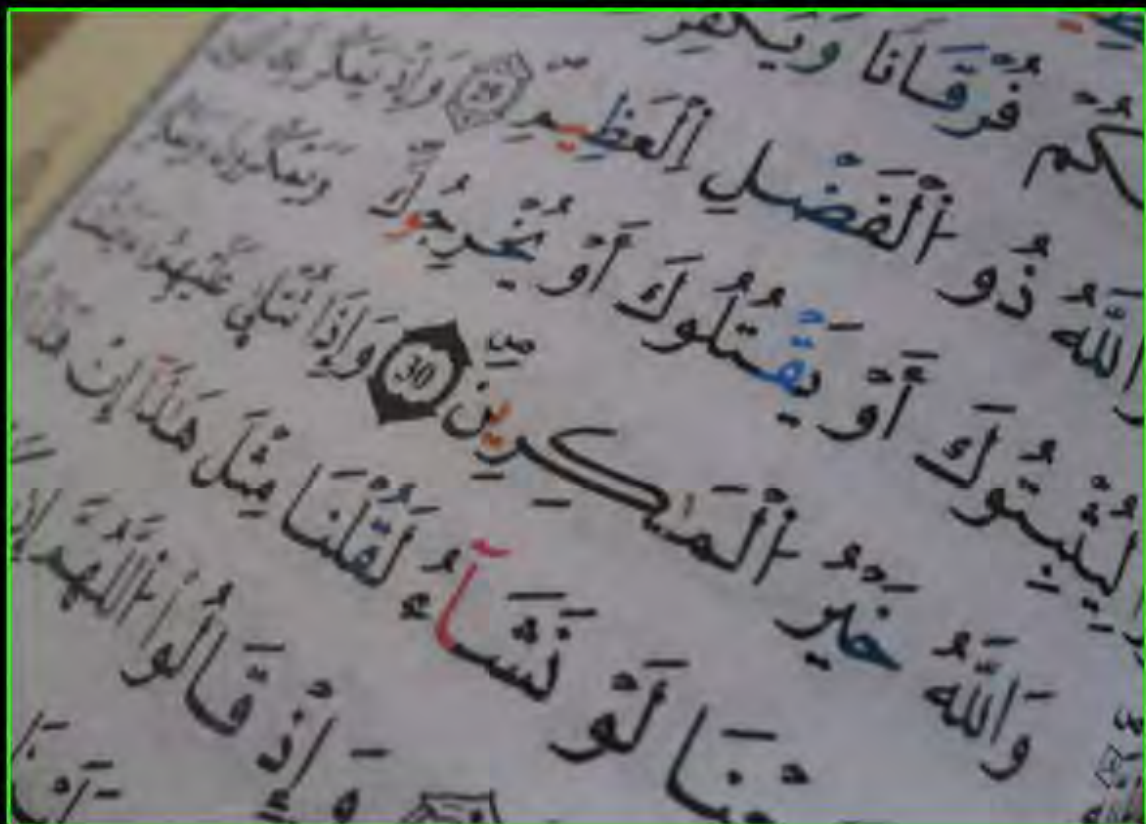 كُمْ فُرْقَانًا وَيُكَفِّرْ
ٱللَّهُ ذُو ٱلْفَضْلِ ٱلْعَظِيمِ 29 وَإِذْ يَمْكُرُ بِكَ
لِيُثْبِتُوكَ أَوْ يَقْتُلُوكَ أَوْ يُخْرِجُوكَ وَيَمْكُرُونَ وَيَمْكُرُ
وَٱللَّهُ خَيْرُ ٱلْمَـٰكِرِينَ 30 وَإِذَا تُتْلَىٰ عَلَيْهِمْ
لَوْ نَشَآءُ لَقُلْنَا مِثْلَ هَـٰذَآ إِنْ هَـٰذَآ
وَإِذْ قَالُوا۟ ٱللَّهُمَّ إِن